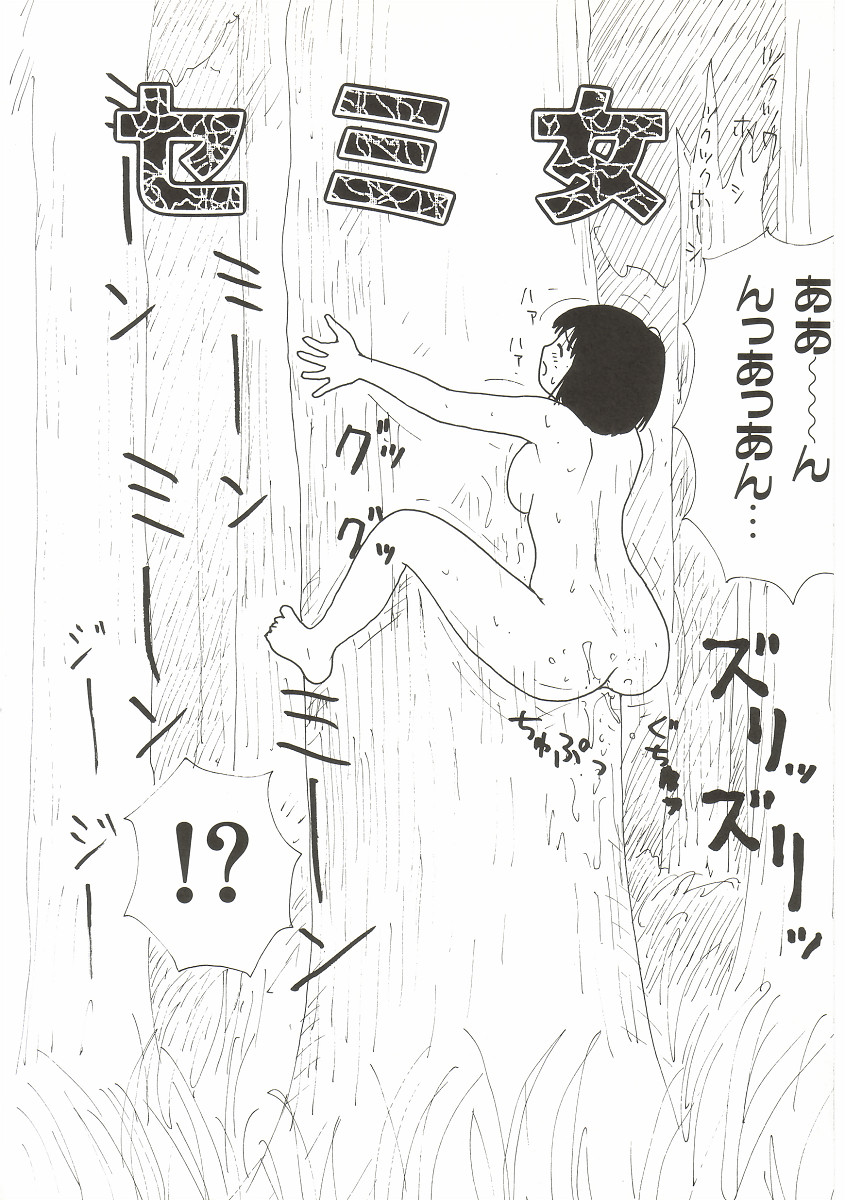 セミ女
ツクツク
ホーシ
ツクツクホーシ
ああ~~~ん
んっあっあん…
ハァ
ハァ
グッ
グッ
ミーン
ミーン
ミーン
ミーン
ジー
ジー
ズリッ
ズリッ
ちゅぷっ
ぐちゅっ
!?